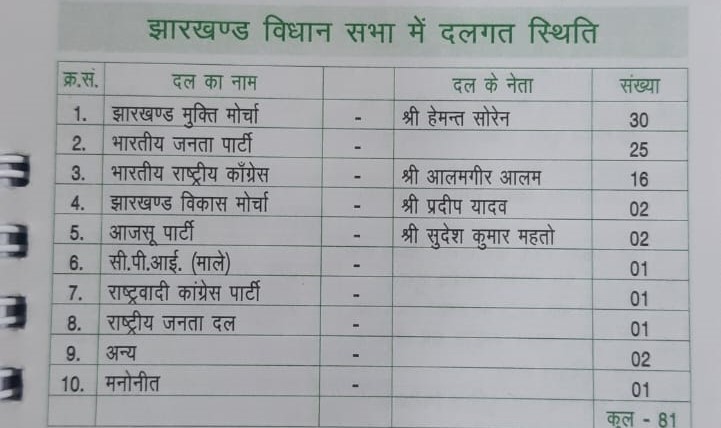 झारखण्ड विधान सभा में दलगत स्थिति
क्र.सं. दल का नाम दल के नेता संख्या
1. झारखण्ड मुक्ति मोर्चा - श्री हेमन्त सोरेन 30
2. भारतीय जनता पार्टी - 25
3. भारतीय राष्ट्रीय काँग्रेस - श्री आलमगीर आलम 16
4. झारखण्ड विकास मोर्चा - श्री प्रदीप यादव 02
5. आजसू पार्टी - श्री सुदेश कुमार महतो 02
6. सी.पी.आई. (माले) - 01
7. राष्ट्रवादी कांग्रेस पार्टी - 01
8. राष्ट्रीय जनता दल - 01
9. अन्य - 02
10. मनोनीत - 01
कुल - 81